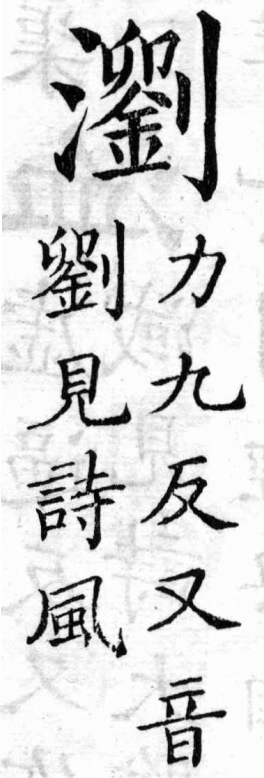 瀏
力九反又音
劉見詩風